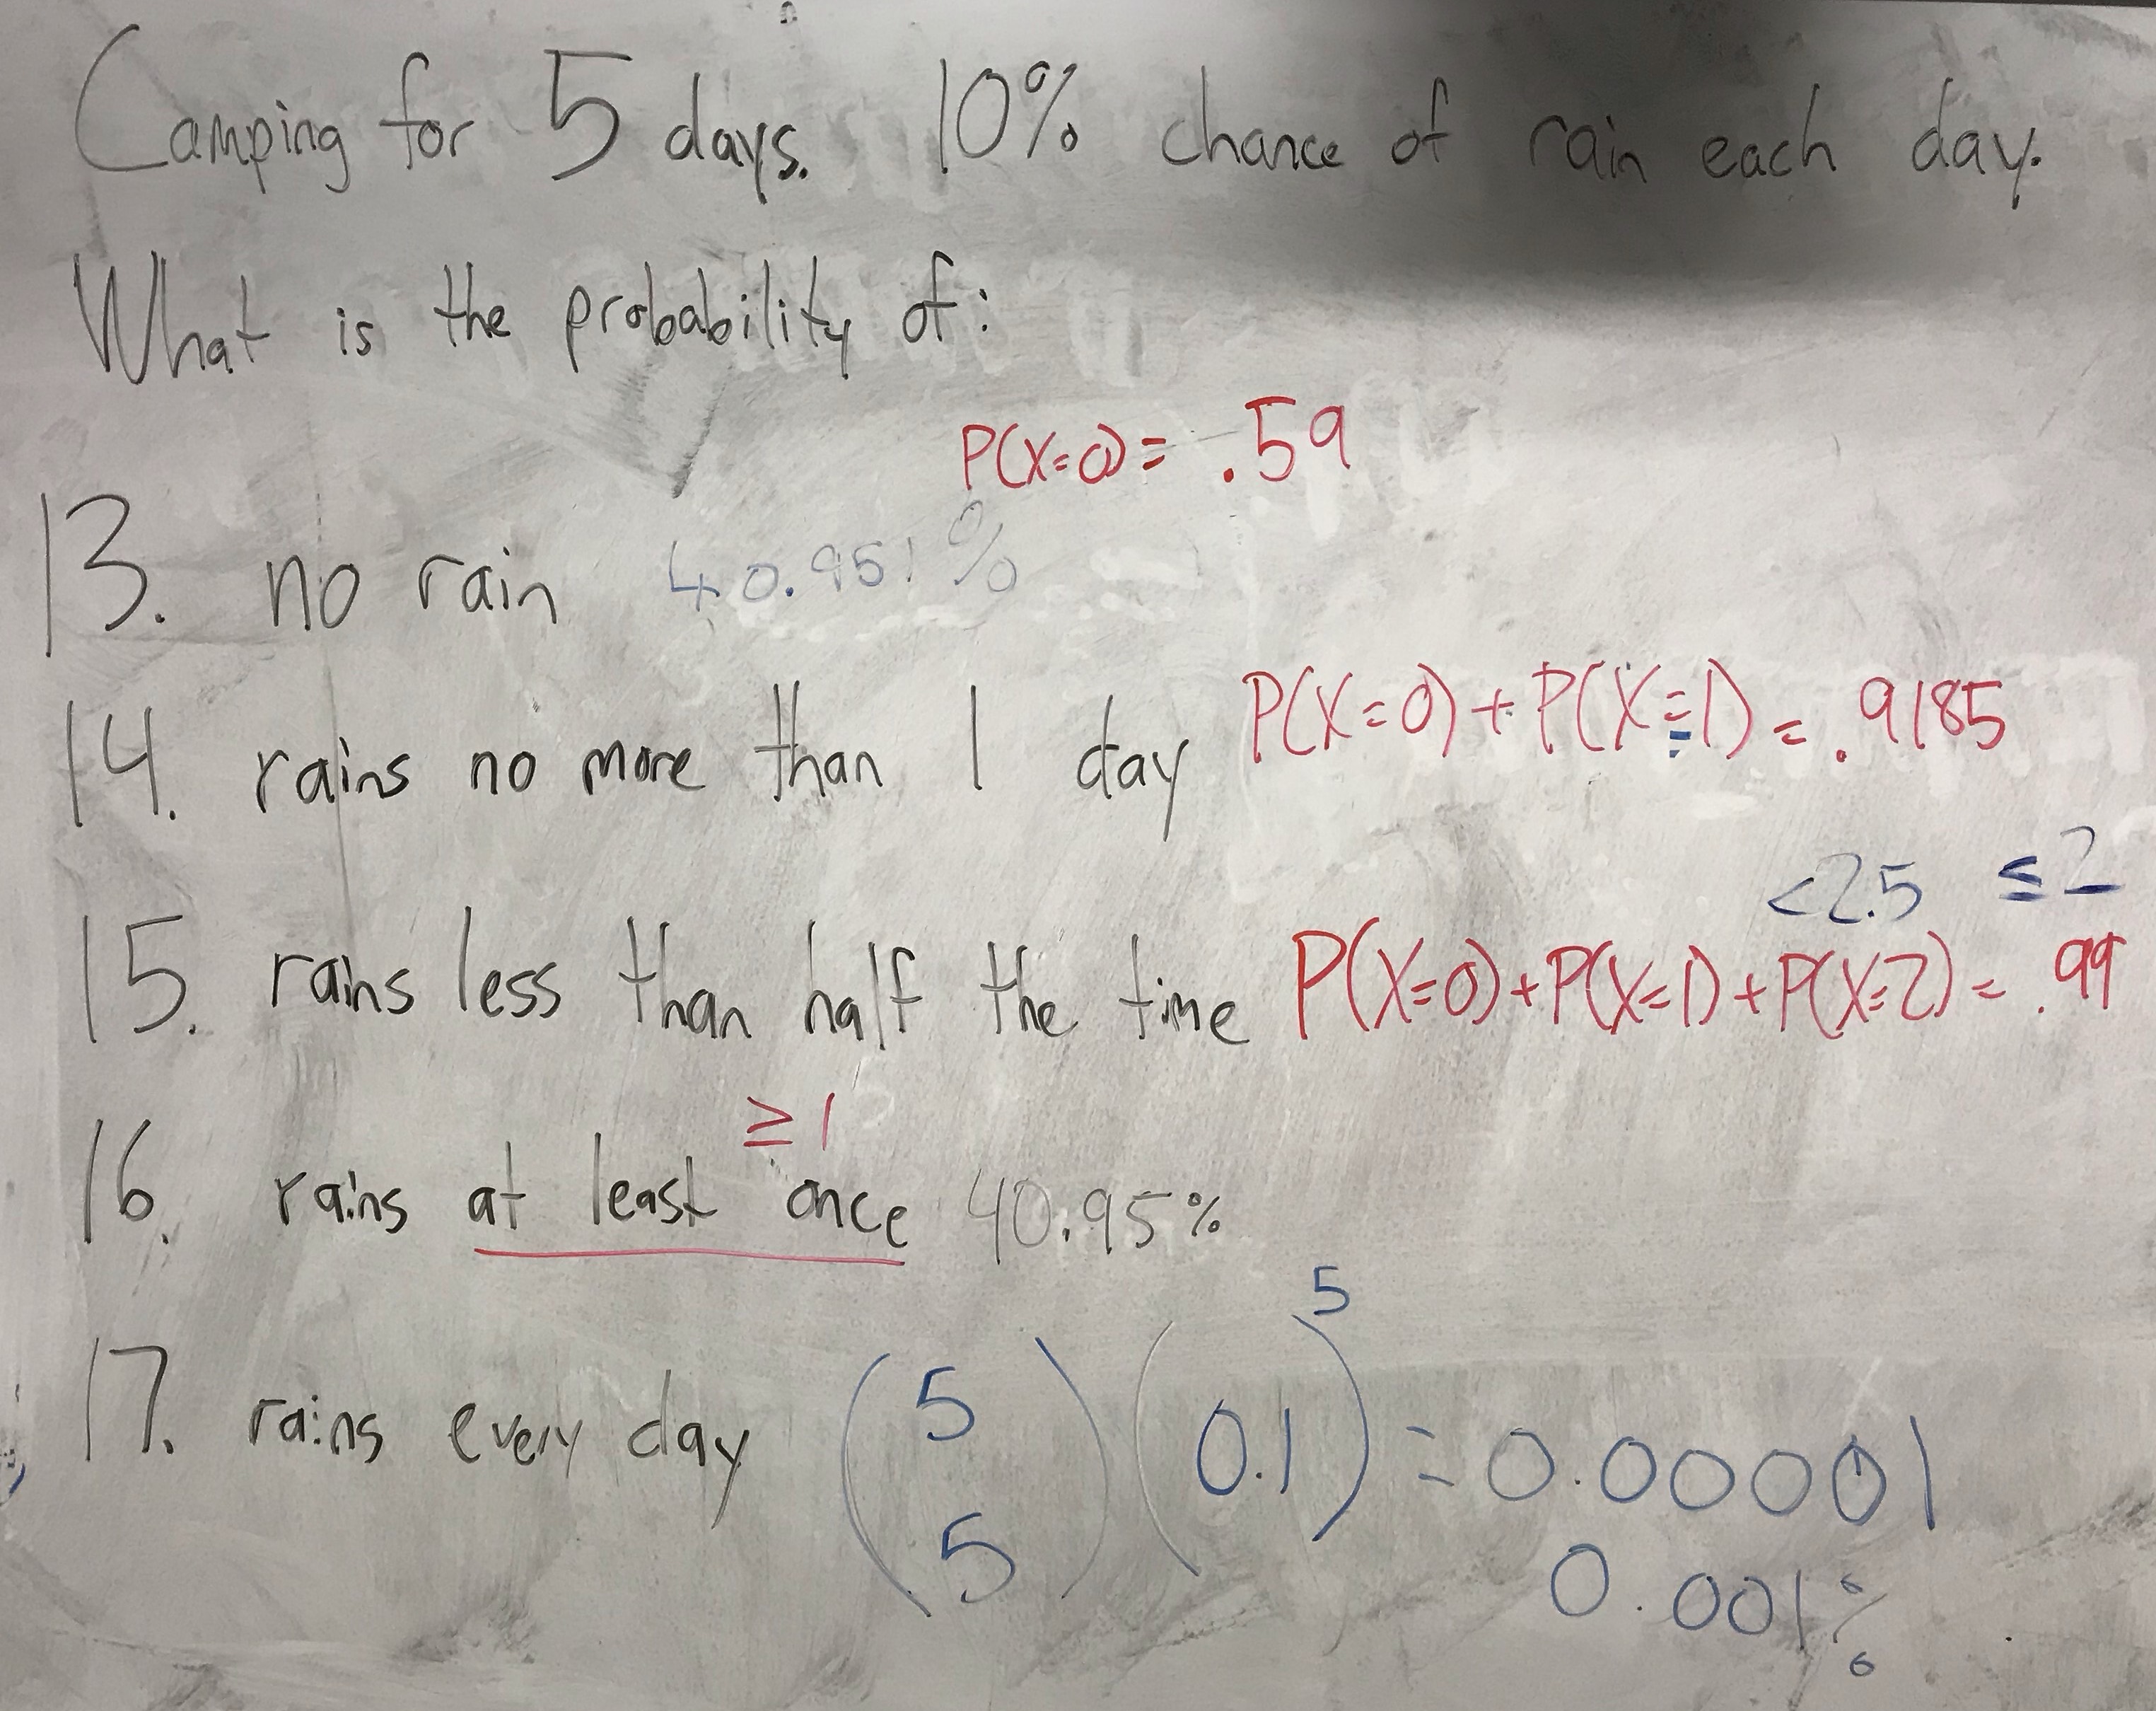 Camping for 5 days. 10% chance of rain each day.
What is the probability of:
P(X=0)= .59
13. no rain 40.951%
14. rains no more than 1 day P(X=0)+P(X=1)=.9185
<2.5 ≤2
15. rains less than half the time P(X=0)+P(X=1)+P(X=2)=.99
≥1
16. rains at least once 40.95%
17. rains every day (5 5)(0.1)^5 = 0.00001
0.001%